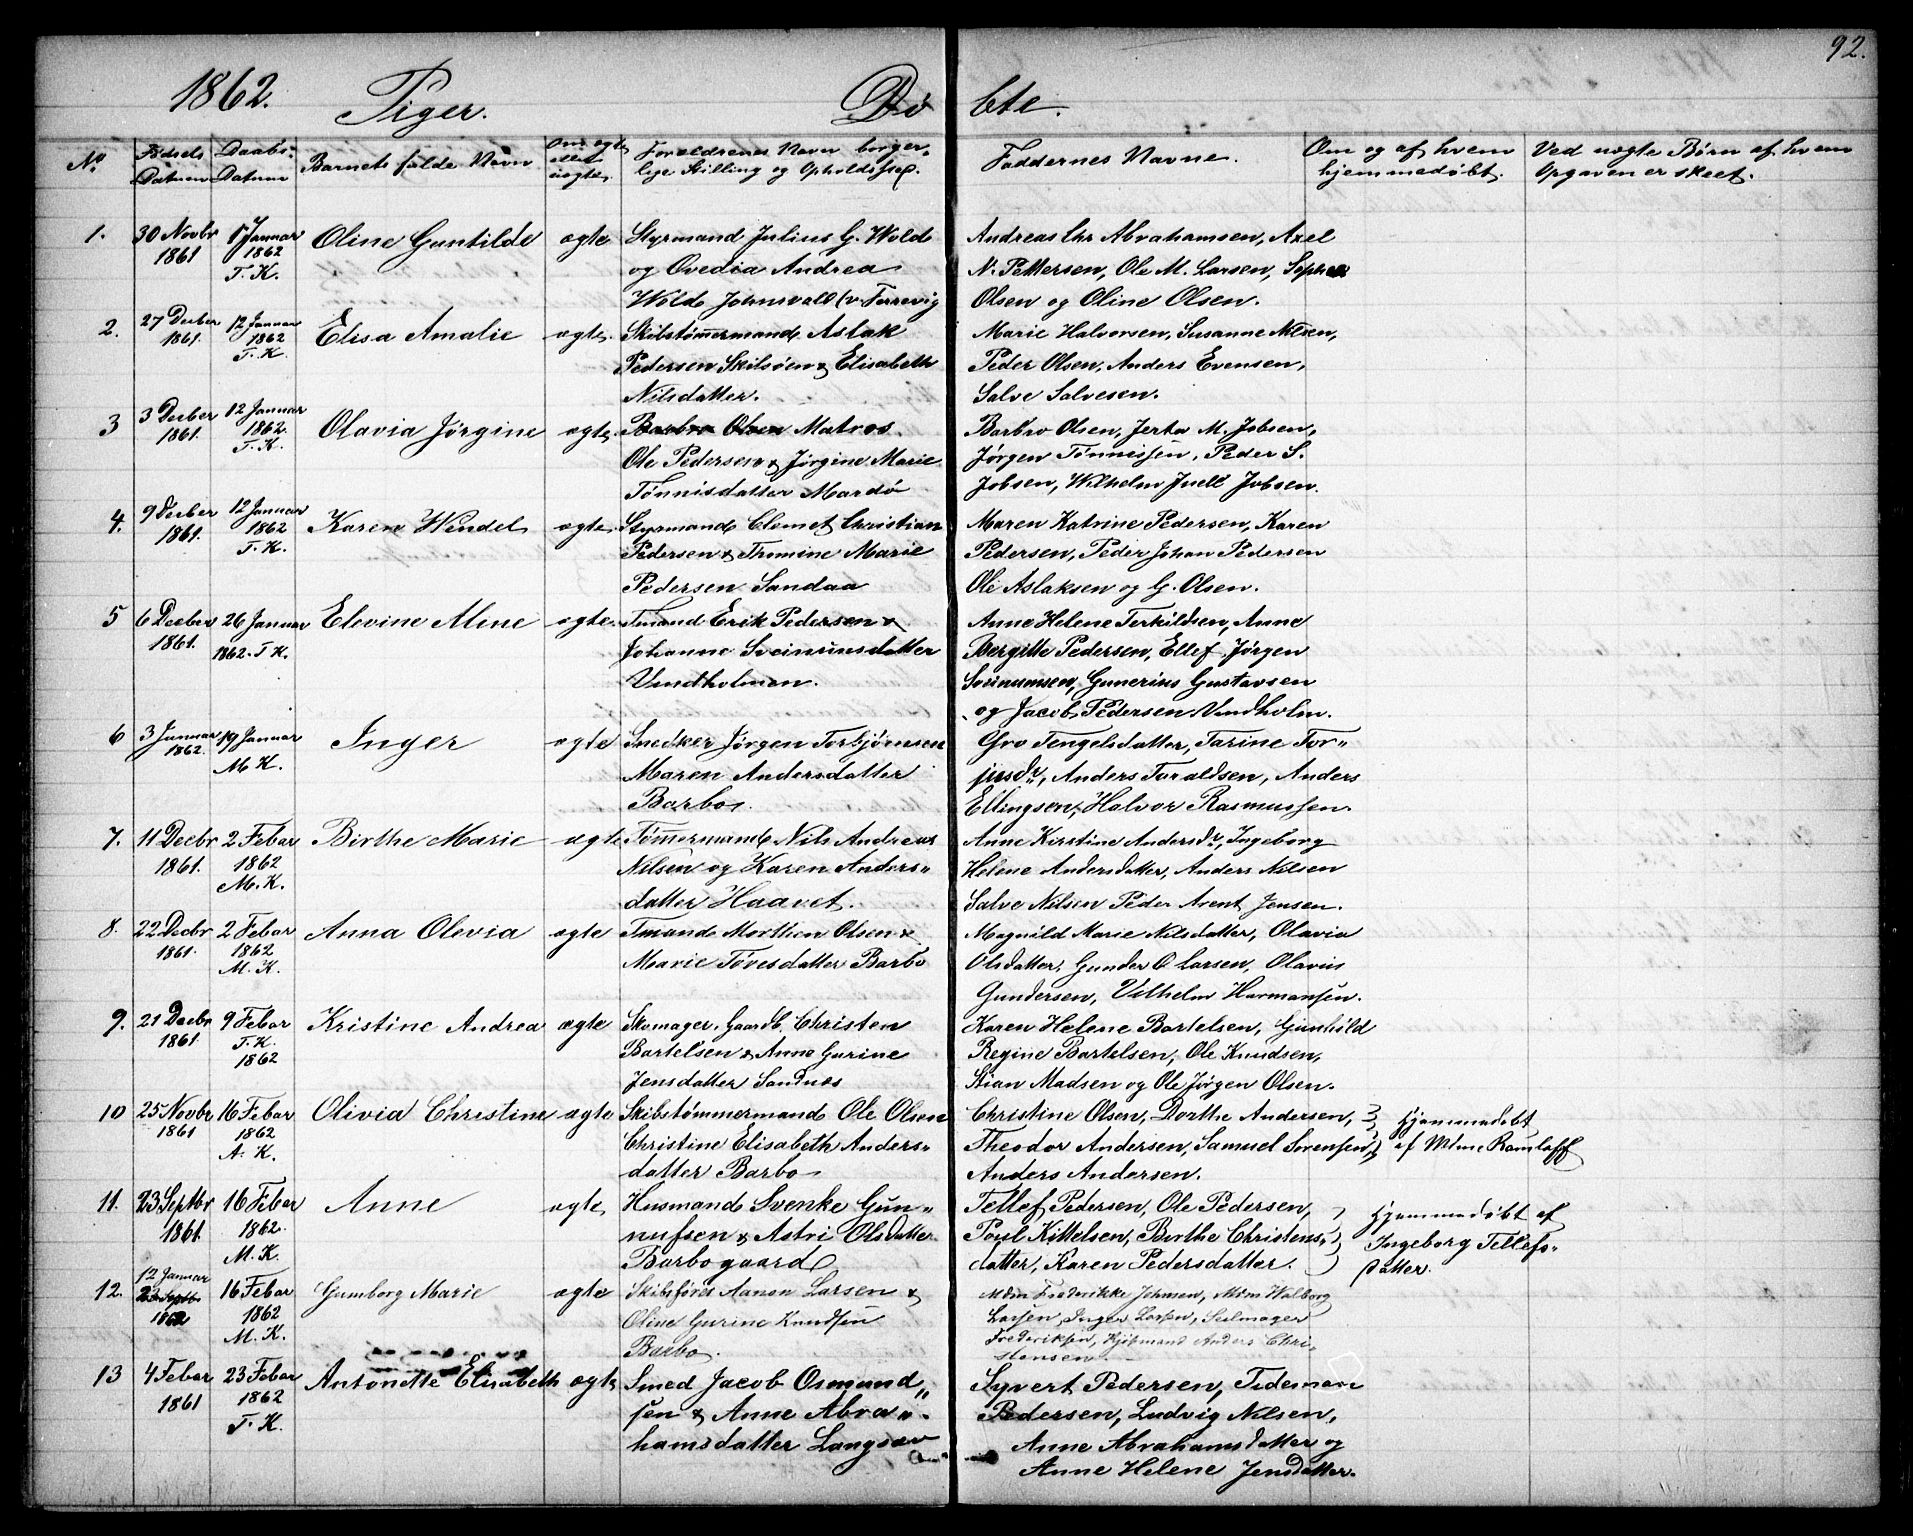 92.
1862. Piger. Dø bte.
No.
Fødsels Datum
Daabs-Datum
Barnets fulde Navn
Om ægte eller uægte.
Forældrenes Navn borger-
lige Stilling og Opholdssted.
Faddernes Navne.
Om og af hvem
hjemmedøbt.
Ved uægte Børn af hvem
Opgaven er skeet.
1. 30 Novbr 1861 1 Januar 1862 T. K. Oline Guntilde ægte Styrmand Julius G. Wold
og Ovedia Andrea
Wold Johnsvald
Andreas Chr Abrahamsen, Axel
N. Pettersen, Ole M. Larsen, Sophie
Olsen og Oline Olsen.
2. 27 Decber 1861. 12 Januar 1862 T. K. Elisa Amalie ægte. Skibstømmermand Aslak
Pedersen Skilsøen & Elisabeth
Nilsdatter.
Marie Halvorsen, Susanne Nilsen,
Peder Olsen, Anders Evensen,
Salve Salvesen.
3 3 Decber 1861. 12 Januar 1862. T. K. Olavia Jørgine ægte. Barbro Olsen Matros
Ole Pedersen & Jørgine Marie
Tønnisdatter Mardø
Barbro Olsen, Jerta M. Jobsen,
Jørgen Tønnissen, Peder S.
Jobsen, Wilhelm Juell Jobsen.
4. 9 Decber 1861. 12 Januar 1862 T. K. Karen Wendel ægte Styrmand Clemet Christian
Pedersen & Thomine Marie
Pedersen Sandaa
Maren Katrine Pedersen, Karen
Pedersen, Peder Johan Pedersen
Ole Aslaksen og G. Olsen.
5 6 Decber 1861. 26 Januar 1862. T K. Elevine Aline ægte. Tmand Erik Pedersen &
Johanne Sveinunsdatter
Vindholmen.
Anne Helene Terkildsen, Anne
Bergitte Pedersen, Ellef Jørgen
Sveinumsen, Gunerius Gustavsen
og Jacob Pedersen Vindholm.
6 3 Januar 1862. 19 Januar M K. Inger ægte Snedker Jørgen Torbjørnsen
Maren Andersdatter
Barbo.
Gro Tengelsdatter, Tarine Tor-
jusdr, Anders Toraldsen, Anders
Ellingsen, Halvor Rasmussen.
7. 11 Decbr 1861. 2 Febar 1862 M. K. Birthe Marie ægte Tømmermand Nils Andreas
Nilsen og Karen Anders-
datter Haavet.
Anne Kirstine Andersdr, Ingeborg
Helene Andersdatter, Anders Nilsen
Salve Nilsen Peder Arent Jensen.
8. 22 Decbr 1861. 2 Febar 1862 M. K. Anna Olevia ægte Tmand Morthen Olsen &
Marie Tøvesdatter Barbo
Magnild Marie Nilsdatter, Olavia
Olsdatter, Gunder O Larsen, Olavius
Gundersen, Vilhelm Hermansen.
9. 21 Decbr 1861. 9 Febar T. K. 1862 Kristine Andrea ægte Skomager, Gaardb. Christen
Bartelsen & Anne Gurine
Jensdatter Sandnæs
Karen Helene Bartelsen, Gunhild
Regine Bartelsen, Ole Knudsen,
Stian Madsen og Ole Jørgen Olsen.
10 25 Novbr 1861 16 Febar 1862 A. K. Olivia Christine ægte Skibstømmermand Ole Olsen
Christine Elisabeth Anders-
datter Barbo
Christine Olsen, Dorthe Andersen,
Theodor Andersen, Samuel Sorensen
Anders Andersen.
Hjemmedøbt
af Mdme
11. 23 Septbr 1861. 16 Febar 1862. M. K. Anne ægte Husmand Svenke Gun-
nufsen & Astri Olsdatter
Barbogaard
Tellef Pedersen, Ole Pedersen,
Poul Kittelsen, Birthe Christens-
datter, Karen Pedersdatter.
Hjemmedøbt af
Ingeborg Tellefs-
datter.
12. 12 Januar 23 Septb. 1862 16 Febar 1862 M. K. Gumborg Marie ægte Skibsfører Aanon Larsen &
Oline Gurine Knudsen
Barbo.
Mdm Frederikke Jensen, Mdm Walborg
Larsen, Inger Larsen, Seilmager
Frederiksen, Kjøbmand Anders Chri-
stensen.
13 4 Febar 1861 23 Febar 1862 T. K. Antonette Elisabeth ægte Smed Jacob Osmund
sen & Anne Abra-
hamsdatter Langsæv
Syvert Pedersen, Tideman
Pedersen, Ludvig Nilsen,
Anne Abrahamsdatter og
Anne Helene Jensdatter.